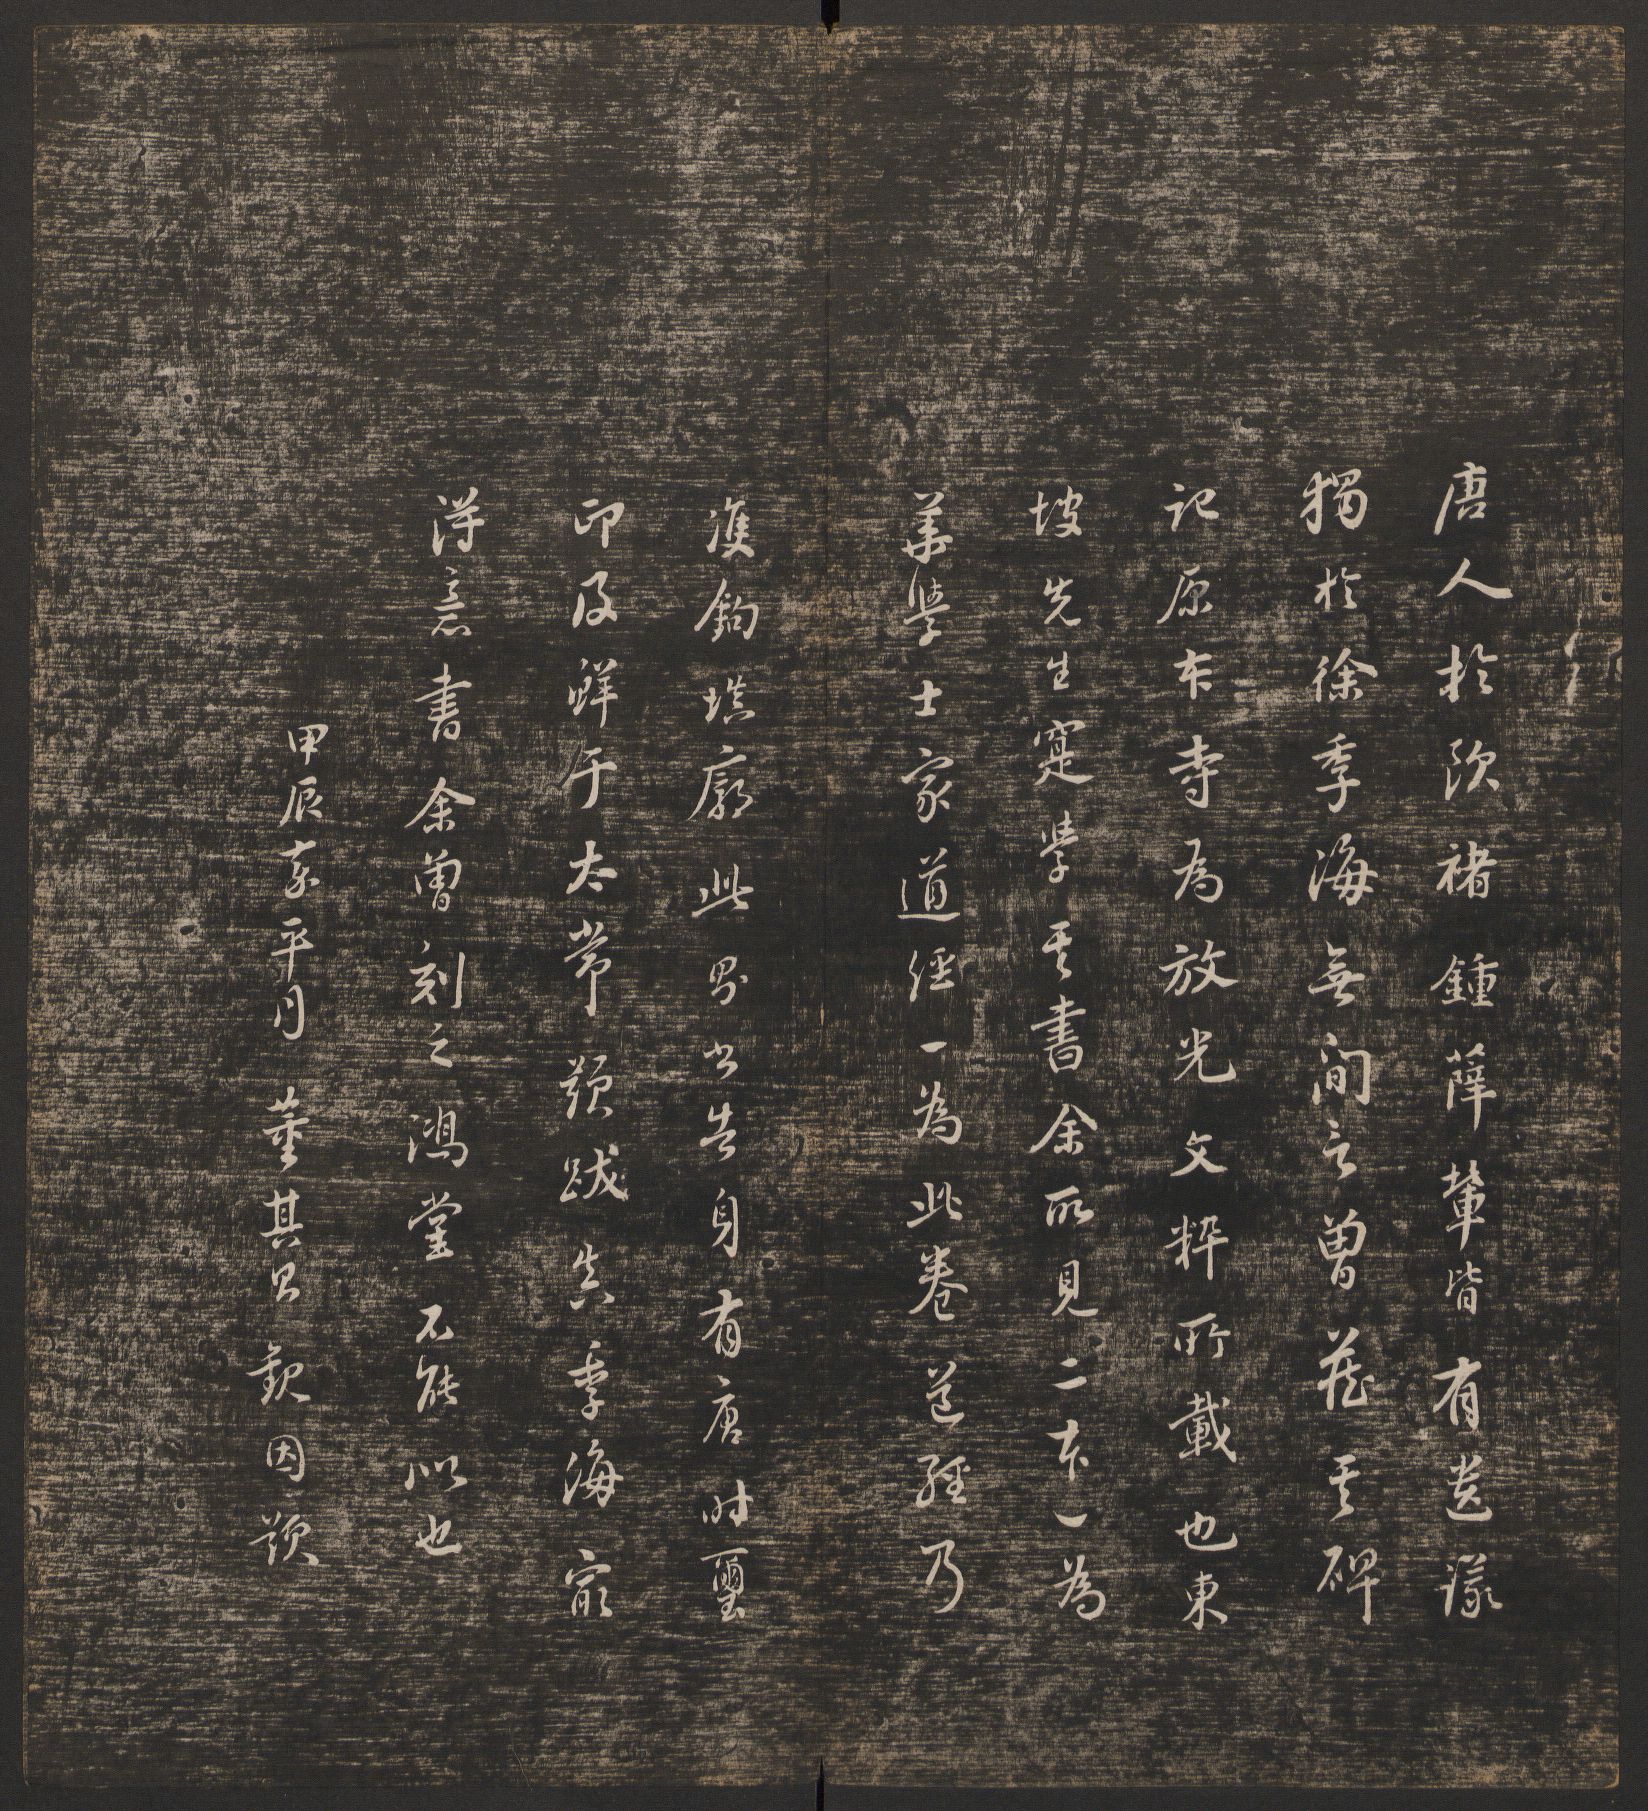 唐人於歐褚鍾薛輩皆有遺議
獨於徐季海無間言曾藏其碑
記原本寺為放光文粹所載也東
坡先生寔學其書余所見二本一為
華學士家道經一為此卷道經乃
雙鉤填廓此告身有唐時璽
印及鮮于太常題跋真季海最
得意書余曾刻之鴻堂不能似也
甲辰嘉平月 董其昌觀因題